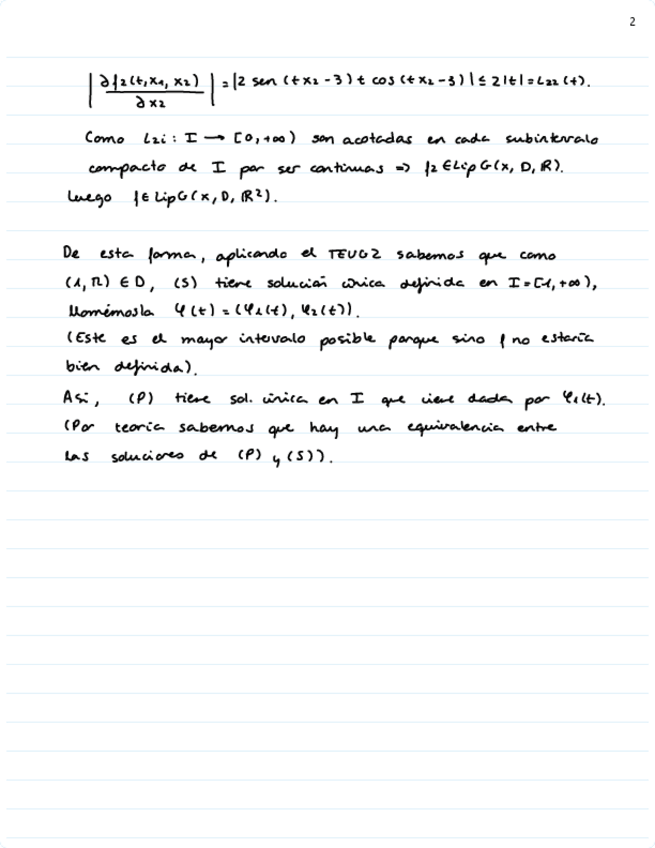 2
| ∂f2(t,x1,x2) / ∂x2 | = |2 sen (tx2-3) t cos (tx2-3)| ≤ 2|t| = L22(t).
Como L2i: I → [0,+∞) son acotadas en cada subintervalo
compacto de I por ser continuas => f2 ∈ Lip G(x, D, R).
Luego f ∈ Lip G(x, D, R²).
De esta forma, aplicando el TEUG2 sabemos que como
(1, π) ∈ D, (S) tiene solución única definida en I = [-1,+∞),
llamémosla φ(t) = (φ1(t), φ2(t)).
(Este es el mayor intervalo posible porque sino f no estaría
bien definida).
Así, (P) tiene sol. única en I que viene dada por φ1(t).
(Por teoría sabemos que hay una equivalencia entre
las soluciones de (P) y (S)).